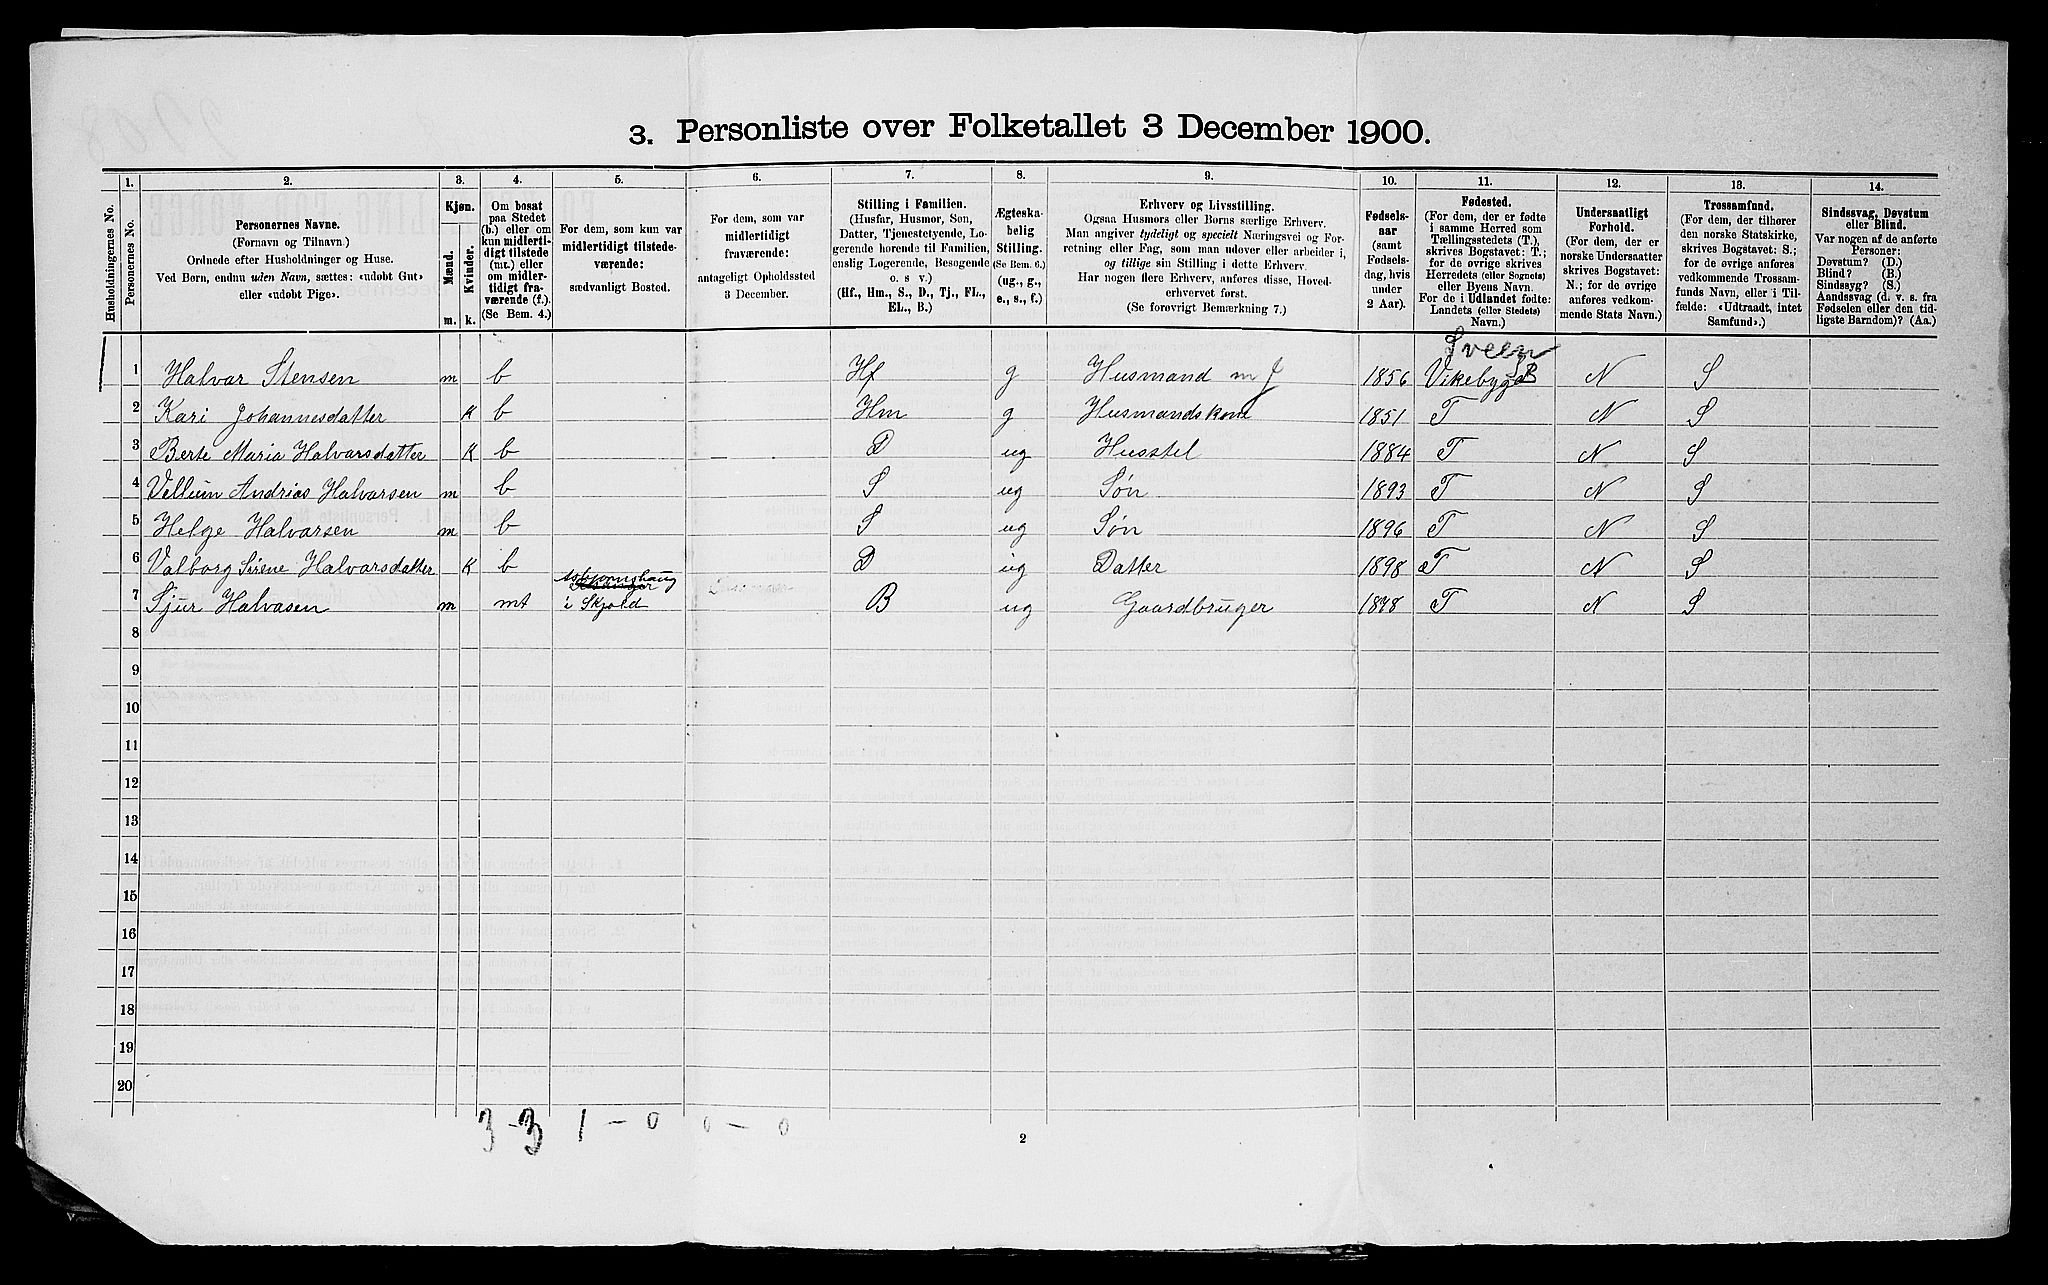 3. Personliste over Folketallet 3 December 1900.
1. 2. 3. 4. 5. 6. 7. 8. 9. 10. 11. 12. 13. 14.
Husholdningernes No.
Personernes No.
Personernes Navne.
(Fornavn og Tilnavn.)
Ordnede efter Husholdninger og Huse.
Ved Børn, endnu uden Navn, sættes: «udøbt Gut»
eller «udøbt Pige».
Kjøn.
Mænd.
Kvinder.
m. k.
Om bosat
paa Stedet
(b.) eller om
kun midlerti-
digt tilstede
(mt.) eller
om midler-
tidigt fra-
værende (f.).
(Se Bem. 4.)
For dem, som kun var
midlertidigt tilstede-
værende:
sædvanligt Bosted.
For dem, som var
midlertidigt
fraværende:
antageligt Opholdssted
3 December.
Stilling i Familien.
(Husfar, Husmor, Søn,
Datter, Tjenestetyende, Lo-
gerende hørende til Familien,
enslig Logerende, Besøgende
o. s v.)
(Hf., Hm., S., D., Tj., FL.,
EL., B.)
Ægteska-
belig
Stilling.
(Se Bem. 6.)
(ug., g.,
e., s., f.)
Erhverv og Livsstilling.
Ogsaa Husmors eller Børns særlige Erhverv.
Man angiver tydeligt og specielt Næringsvei og For-
retning eller Fag, som man udøver eller arbeider i,
og tillige sin Stilling i dette Erhverv.
Har nogen flere Erhverv, anføres disse, Hoved-
erhvervet først.
(Se forøvrigt Bemærkning 7.)
Fødsels-
aar
(samt
Fødsels-
dag, hvis
under
2 Aar).
Fødested.
(For dem, der er fødte
i samme Herred som
Tællingsstedets (T.),
skrives Bogstavet: T.;
for de øvrige skrives
Herredets (eller Sognets)
eller Byens Navn.
For de i Udlandet fødte:
Landets (eller Stedets)
Navn.)
Undersaatligt
Forhold.
(For dem, der er
norske Undersaatter
skrives Bogstavet:
N.; for de øvrige
anføres vedkom-
mende Stats Navn.)
Trossamfund.
(For dem, der tilhører
den norske Statskirke,
skrives Bogstavet: S.;
for de øvrige anføres
vedkommende Trossam-
funds Navn, eller i Til-
fælde: «Udtraadt, intet
Samfund».)
Sindssvag, Døvstum
eller Blind.
Var nogen af de anførte
Personer:
Døvstum? (D.)
Blind? (B.)
Sindssyg? (S.)
Aandssvag (d. v. s. fra
Fødselen eller den tid-
ligste Barndom)? (Aa.)
Sveen
1 Halvar Stensen m b Hf g Husmand m J 1856 Vikebygd N S
2 Kari Johannesdatter k b Hm g Husmandskone 1851 T N S
3 Berte Maria Halvarsdatter k b D ug Husstel 1884 T N S
4 Vellum Andrias Halvarsen m b S ug Søn 1893 T N S
5 Helge Halvarsen m b S ug Søn 1896 T N S
6 Valborg Serine Halvarsdatter k b D ug Datter 1898 T N S
Asbjørnshaug
7 Sjur Halvasen m mt i Skjold B ug Gaardbruger 1878 T N S
8
9
10
11
12
13
14
15
16
17
18
19
20
3 - 3 1 - 0 0 - 0
2